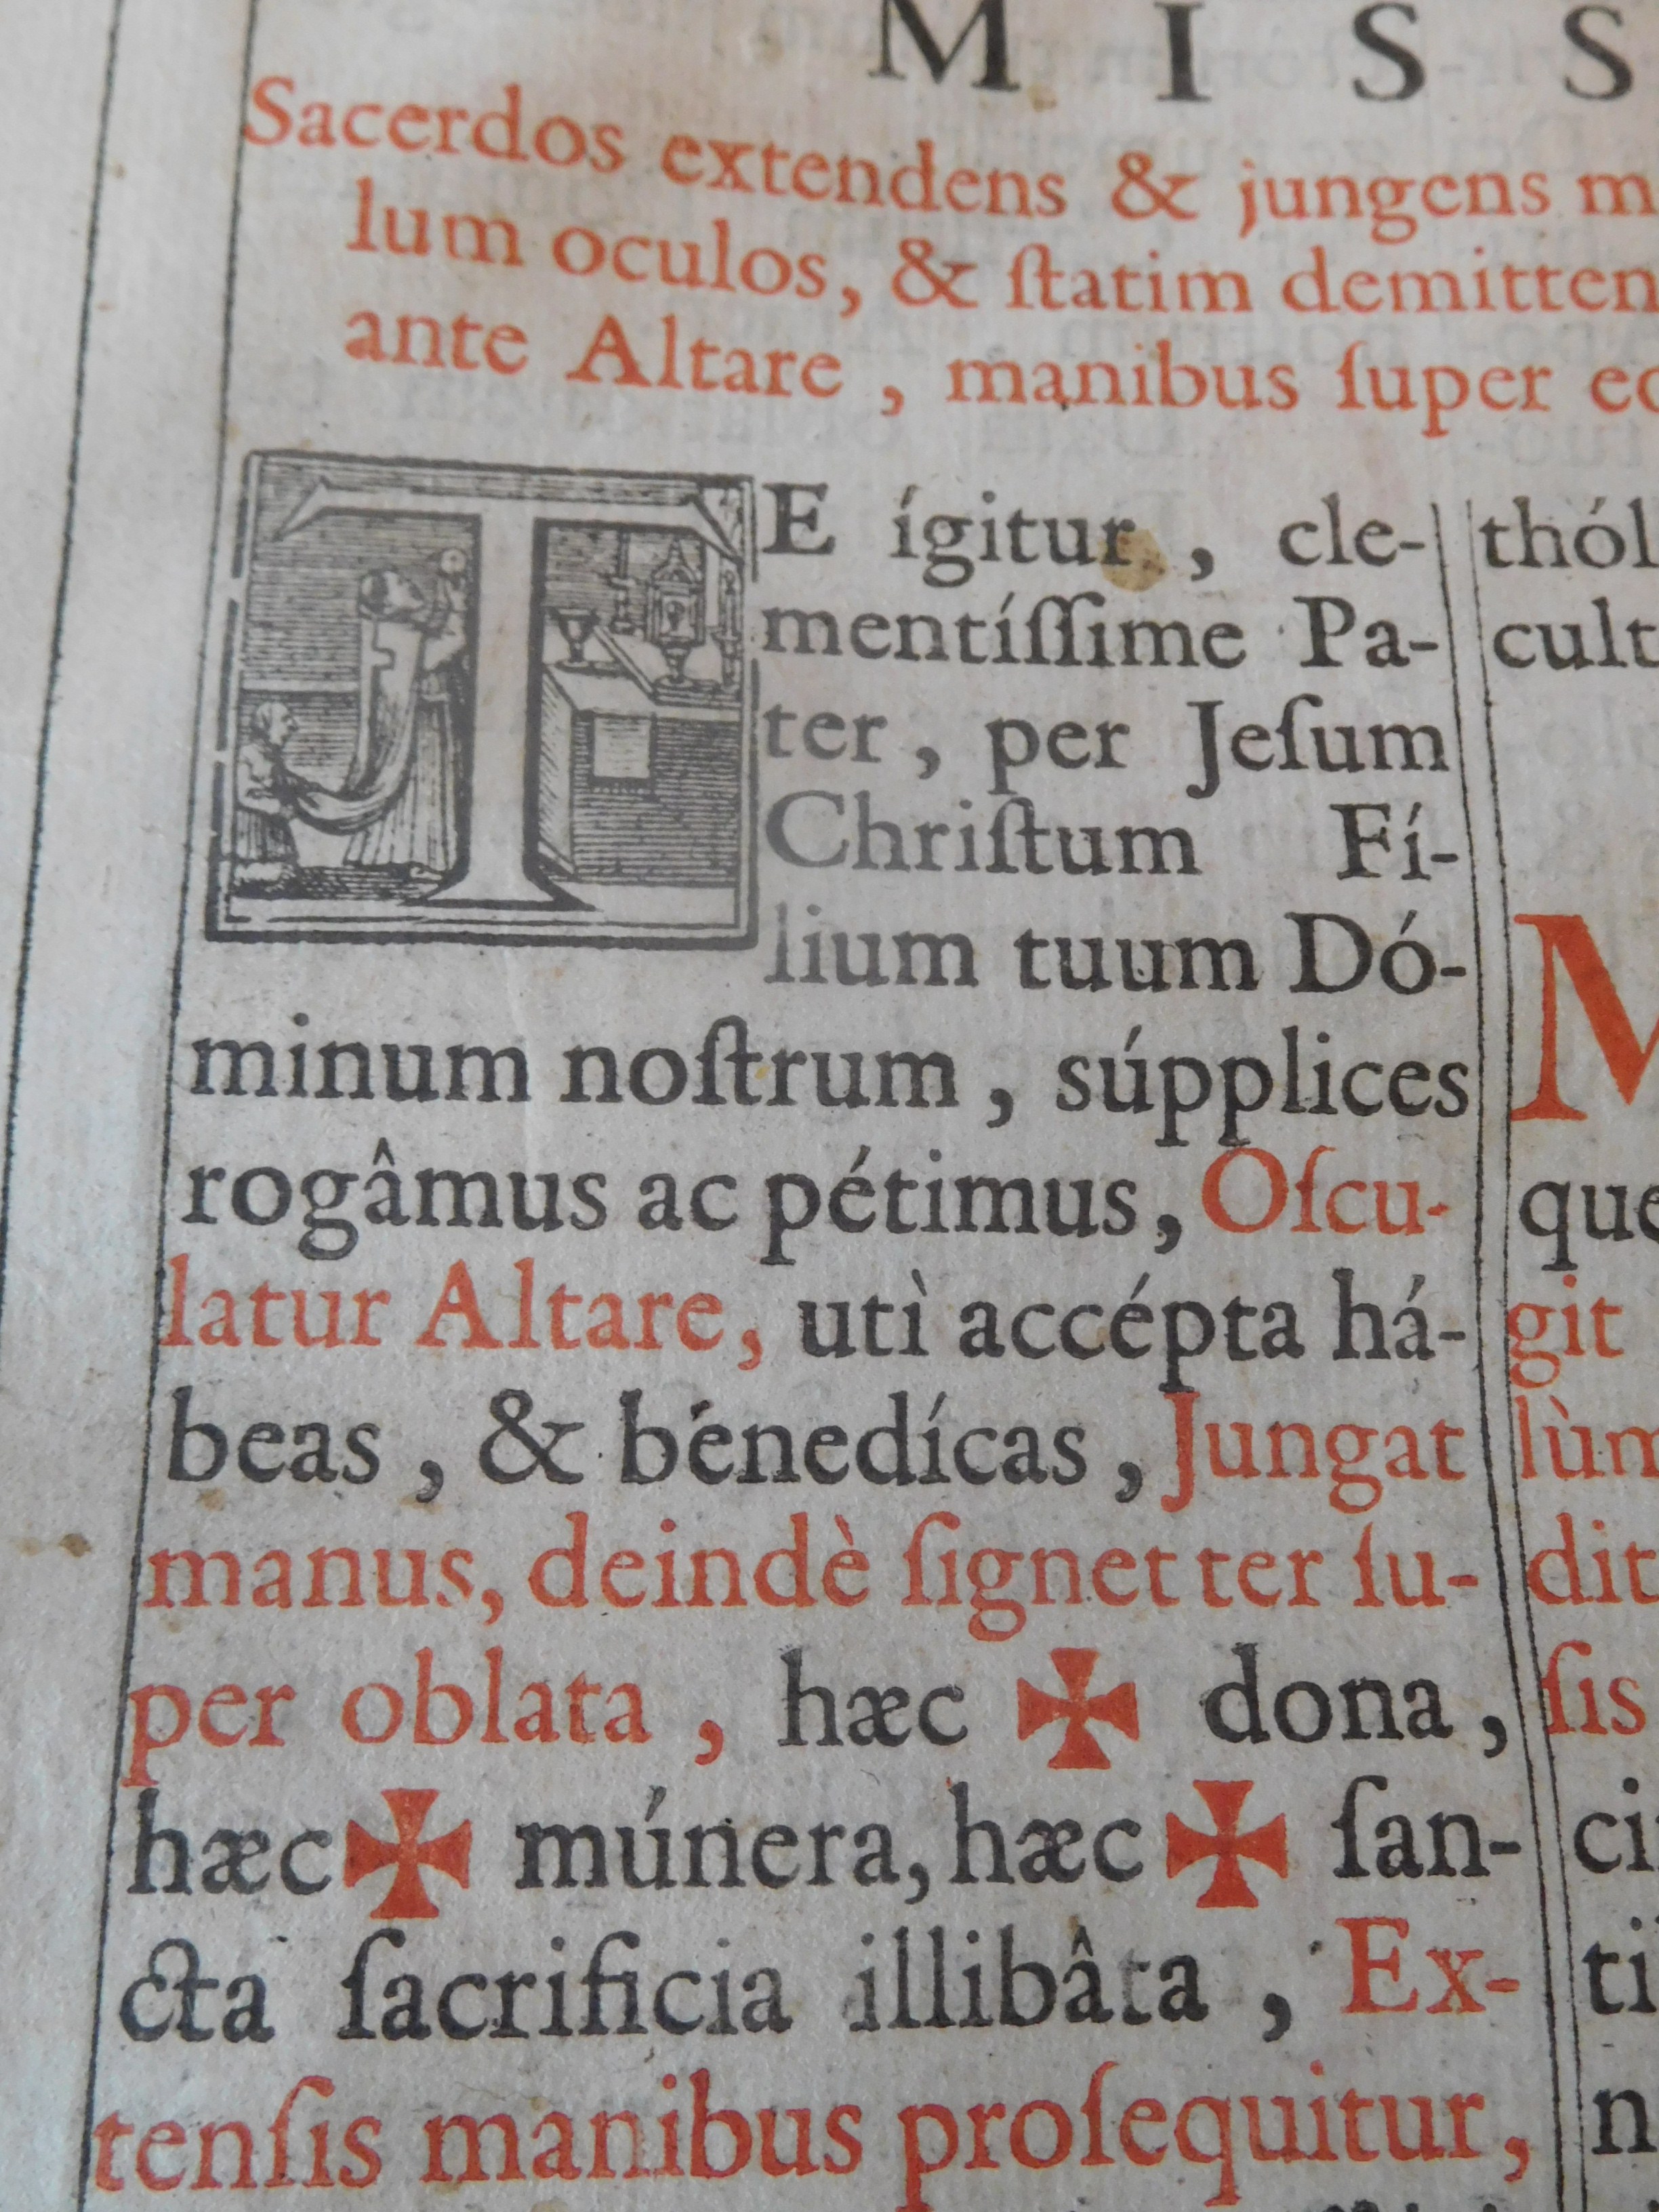 MISS
Sacerdos extendens & jungens m
lum oculos, & ſtatim demitten
ante Altare, manibus ſuper eo
TE ígitur, cle-
mentíſſime Pa-
ter, per Jeſum
Chriſtum Fí-
lium tuum Dó-
minum noſtrum, súpplices
rogâmus ac pétimus, Oſcu-
latur Altare, utì accépta há-
beas, & bénedícas, Jungat
manus, deindè ſignet ter ſu-
per oblata, hæc ✠ dona,
hæc ✠ múnera, hæc ✠ ſan-
cta ſacrificia illibâta, Ex-
tenſis manibus proſequitur,
thól
cult
M
que
git
lùm
dit
ſis
ci
ti
n